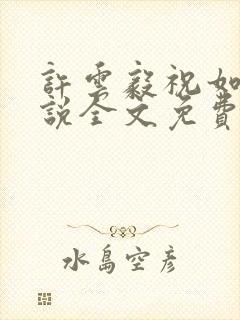 許雲毅祝如
說全文免費
水島空彥